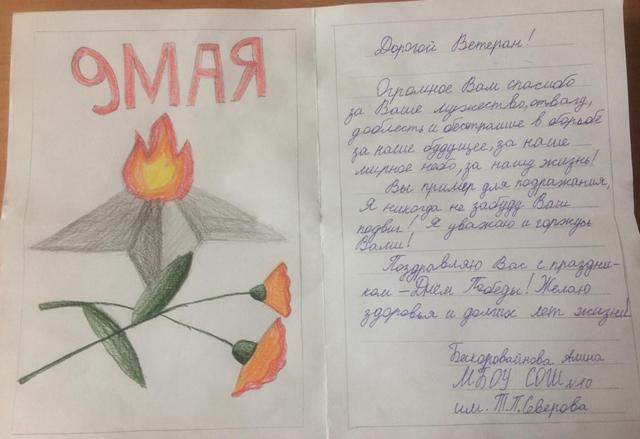 9 МАЯ
Дорогой Ветеран!
Огромное Вам спасибо
за Ваше мужество, отвагу,
доблесть и бесстрашие в борьбе
за наше будущее, за наше
мирное небо, за нашу жизнь!
Вы пример для подражания,
Я никогда не забуду Ваш
подвиг! Я уважаю и горжусь
Вами!
Поздравляю Вас с праздни-
ком - Днём Победы! Желаю
здоровья и долгих лет жизни!
Бескоровайнова Алина
МБОУ СОШ №10
им. Т.П. Северова